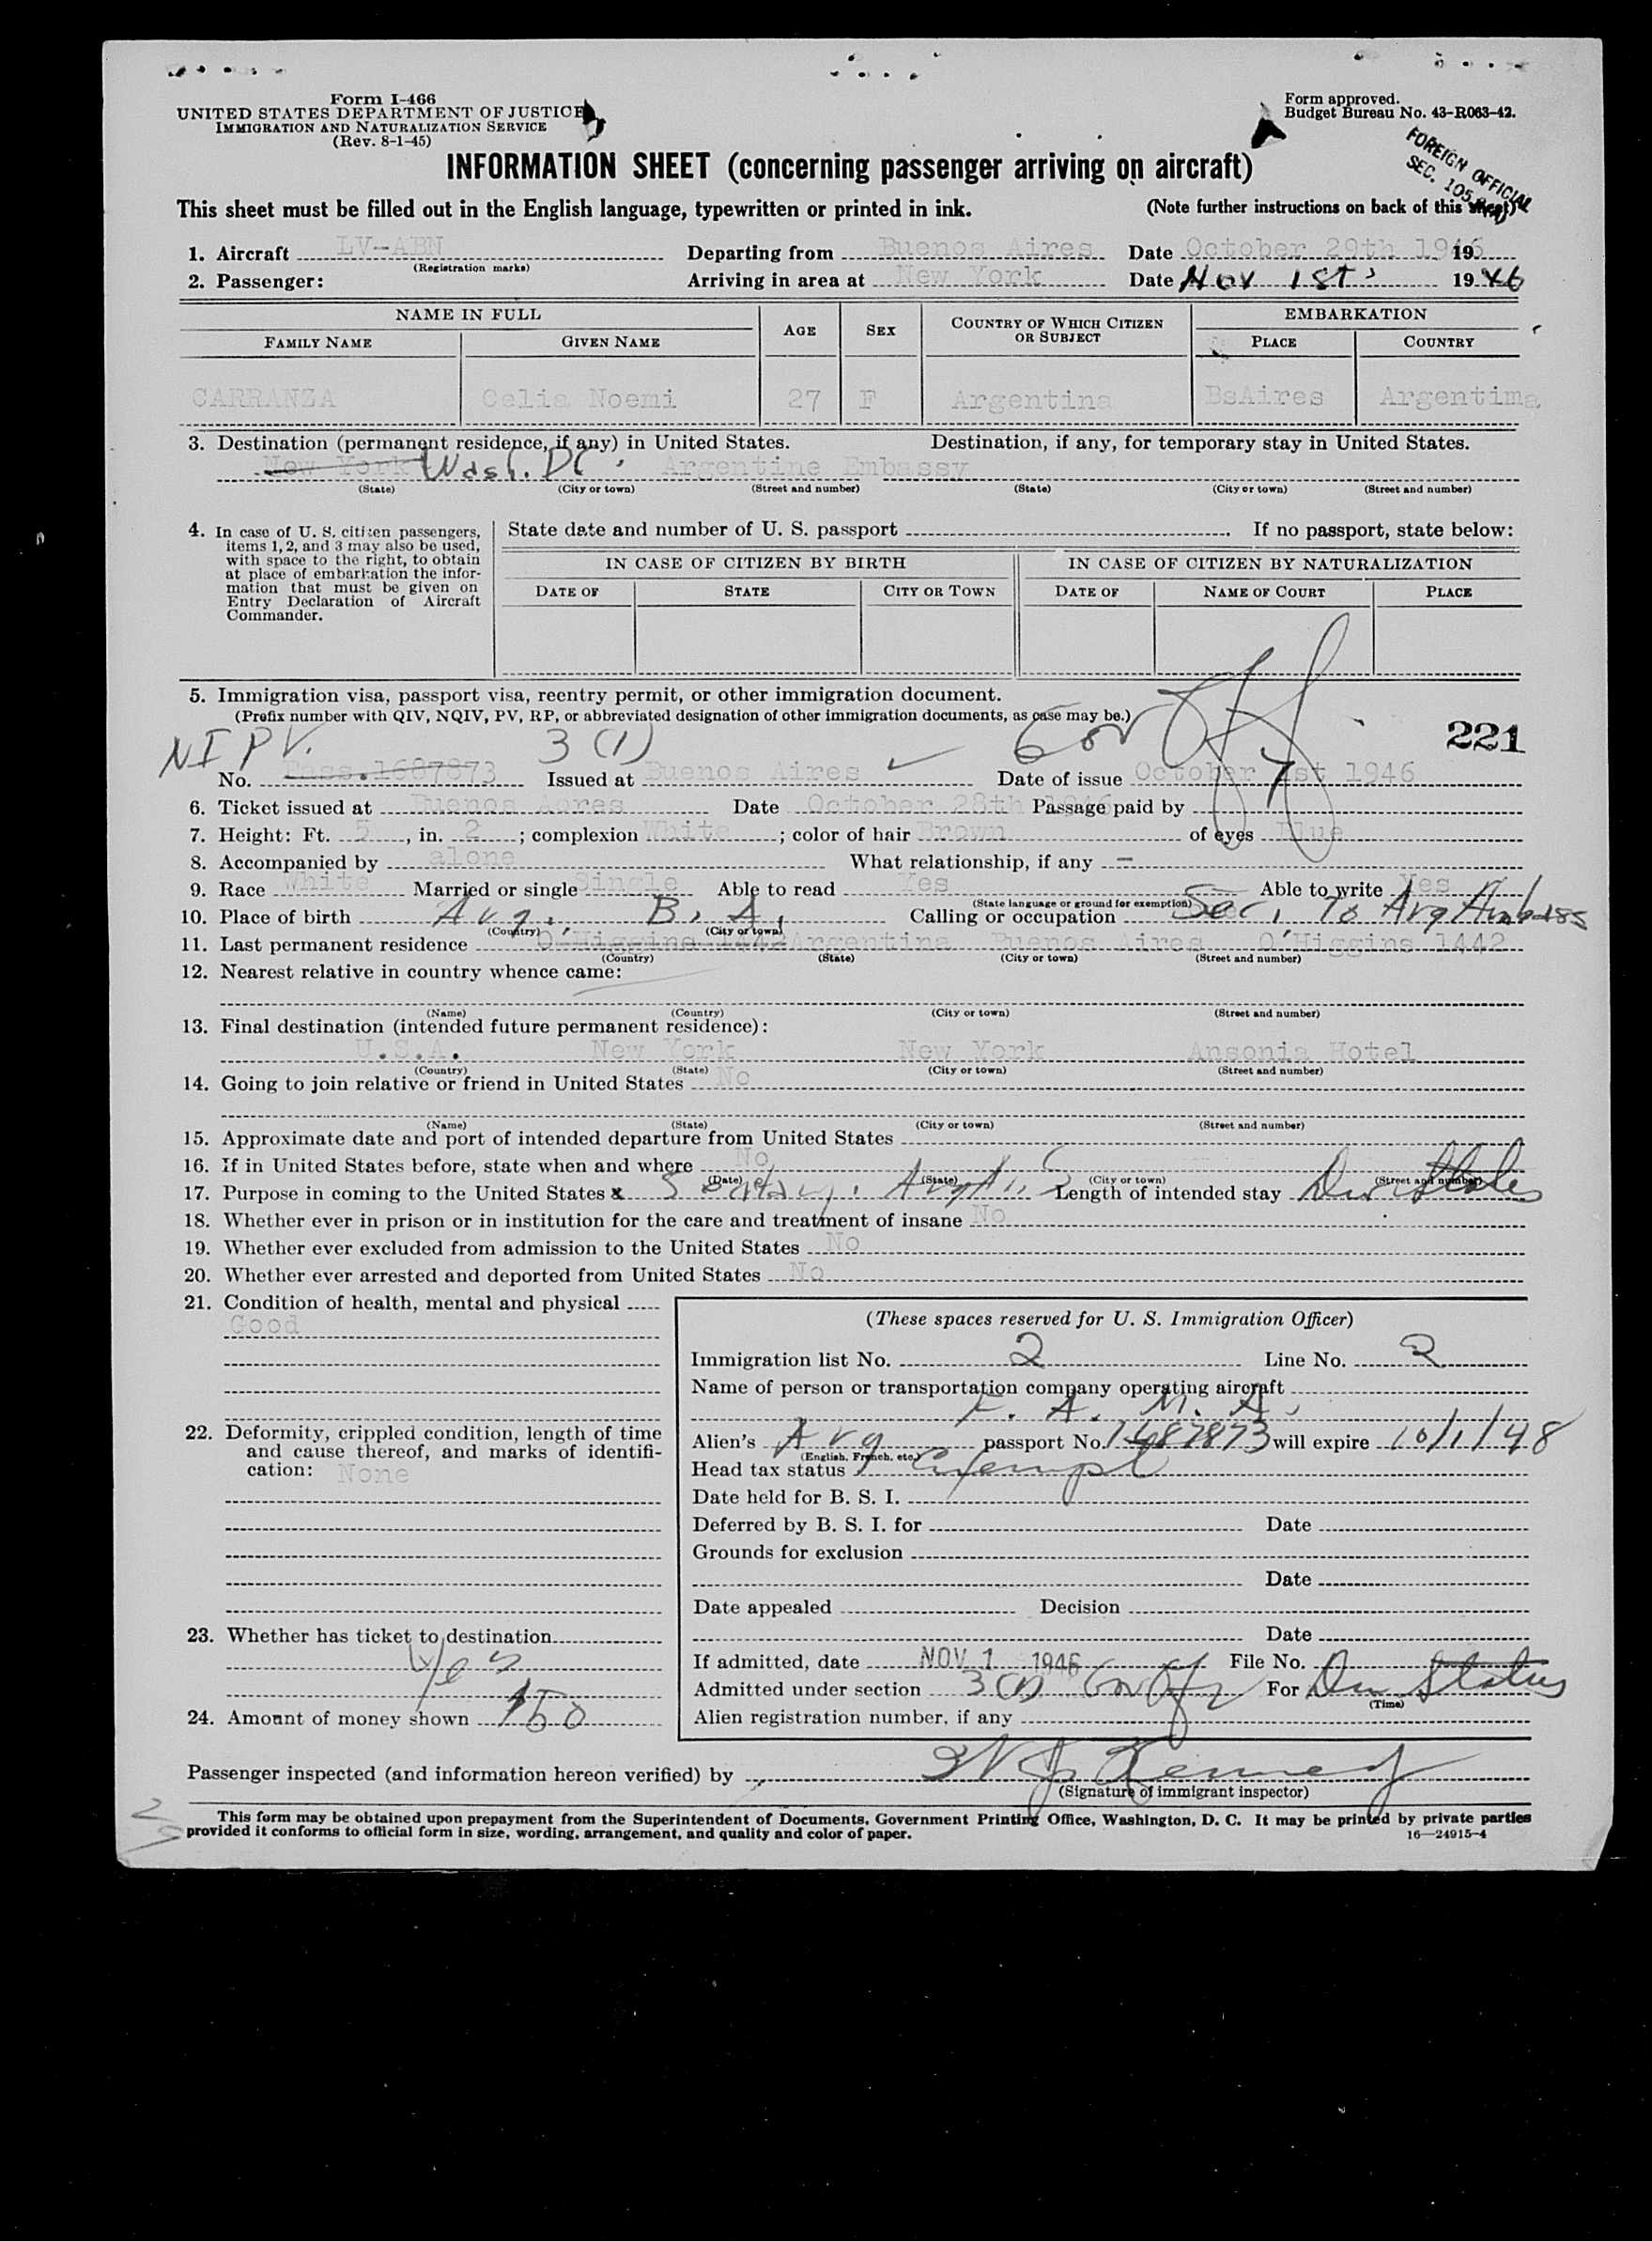 Form I-466
UNITED STATES DEPARTMENT OF JUSTICE
IMMIGRATION AND NATURALIZATION SERVICE
(Rev. 8-1-45)
Form approved.
Budget Bureau No. 43-R063-42.
FOREIGN OFFICIAL
SEC. 105
INFORMATION SHEET (concerning passenger arriving on aircraft)
This sheet must be filled out in the English language, typewritten or printed in ink. (Note further instructions on back of this sheet)
1. Aircraft LV-ABN Departing from Buenos Aires Date October 29th 1946 19
(Registration marks)
2. Passenger: Arriving in area at New York Date Nov 1st 1946
NAME IN FULL AGE SEX COUNTRY OF WHICH CITIZEN OR SUBJECT EMBARKATION
FAMILY NAME GIVEN NAME PLACE COUNTRY
CARRANZA Celia Noemi 27 F Argentina BsAires Argentina
3. Destination (permanent residence, if any) in United States. Destination, if any, for temporary stay in United States.
New York Wash. DC. Argentine Embassy
(State) (City or town) (Street and number) (State) (City or town) (Street and number)
4. In case of U. S. citizen passengers, items 1, 2, and 3 may also be used, with space to the right, to obtain at place of embarkation the information that must be given on Entry Declaration of Aircraft Commander.
State date and number of U. S. passport . If no passport, state below:
IN CASE OF CITIZEN BY BIRTH IN CASE OF CITIZEN BY NATURALIZATION
DATE OF STATE CITY OR TOWN DATE OF NAME OF COURT PLACE
5. Immigration visa, passport visa, reentry permit, or other immigration document.
(Prefix number with QIV, NQIV, PV, RP, or abbreviated designation of other immigration documents, as case may be.)
221
NIPV. 3(1) Gov Off
No. Pass.1687873 Issued at Buenos Aires Date of issue October 1st 1946
6. Ticket issued at Buenos Aores Date October 28th 1946 Passage paid by
7. Height: Ft. 5, in. 2; complexion White; color of hair Brown of eyes Blue
8. Accompanied by alone What relationship, if any -
9. Race White Married or single Single Able to read Yes Able to write Yes
(State language or ground for exemption)
10. Place of birth Arg. B. A. Calling or occupation Sec. To Arg Ambass
(Country) (City or town)
11. Last permanent residence O'Higgins 1442 Argentina Buenos Aires O'Higgins 1442
(Country) (State) (City or town) (Street and number)
12. Nearest relative in country whence came:
(Name) (Country) (City or town) (Street and number)
13. Final destination (intended future permanent residence):
U.S.A. New York New York Ansonia Hotel
(Country) (State) (City or town) (Street and number)
14. Going to join relative or friend in United States No
(Name) (State) (City or town) (Street and number)
15. Approximate date and port of intended departure from United States
16. If in United States before, state when and where No
(Date) (State) (City or town) (Street and number)
17. Purpose in coming to the United States Length of intended stay Dur Status
18. Whether ever in prison or in institution for the care and treatment of insane No
19. Whether ever excluded from admission to the United States No
20. Whether ever arrested and deported from United States No
21. Condition of health, mental and physical
Good
22. Deformity, crippled condition, length of time and cause thereof, and marks of identification: None
23. Whether has ticket to destination
Yes
24. Amount of money shown 150
(These spaces reserved for U. S. Immigration Officer)
Immigration list No. 2 Line No. 2
Name of person or transportation company operating aircraft
F. A. M. A.
Alien's Arg passport No. 1687873 will expire 10/1/48
(English, French, etc.)
Head tax status Exempt
Date held for B. S. I.
Deferred by B. S. I. for Date
Grounds for exclusion
Date
Date appealed Decision
Date
If admitted, date NOV 1 1946 File No.
Admitted under section 3(1) Gov Off For Dur Status
(Time)
Alien registration number, if any
Passenger inspected (and information hereon verified) by Kennedy
(Signature of immigrant inspector)
This form may be obtained upon prepayment from the Superintendent of Documents, Government Printing Office, Washington, D. C. It may be printed by private parties
provided it conforms to official form in size, wording, arrangement, and quality and color of paper. 16—24915-4